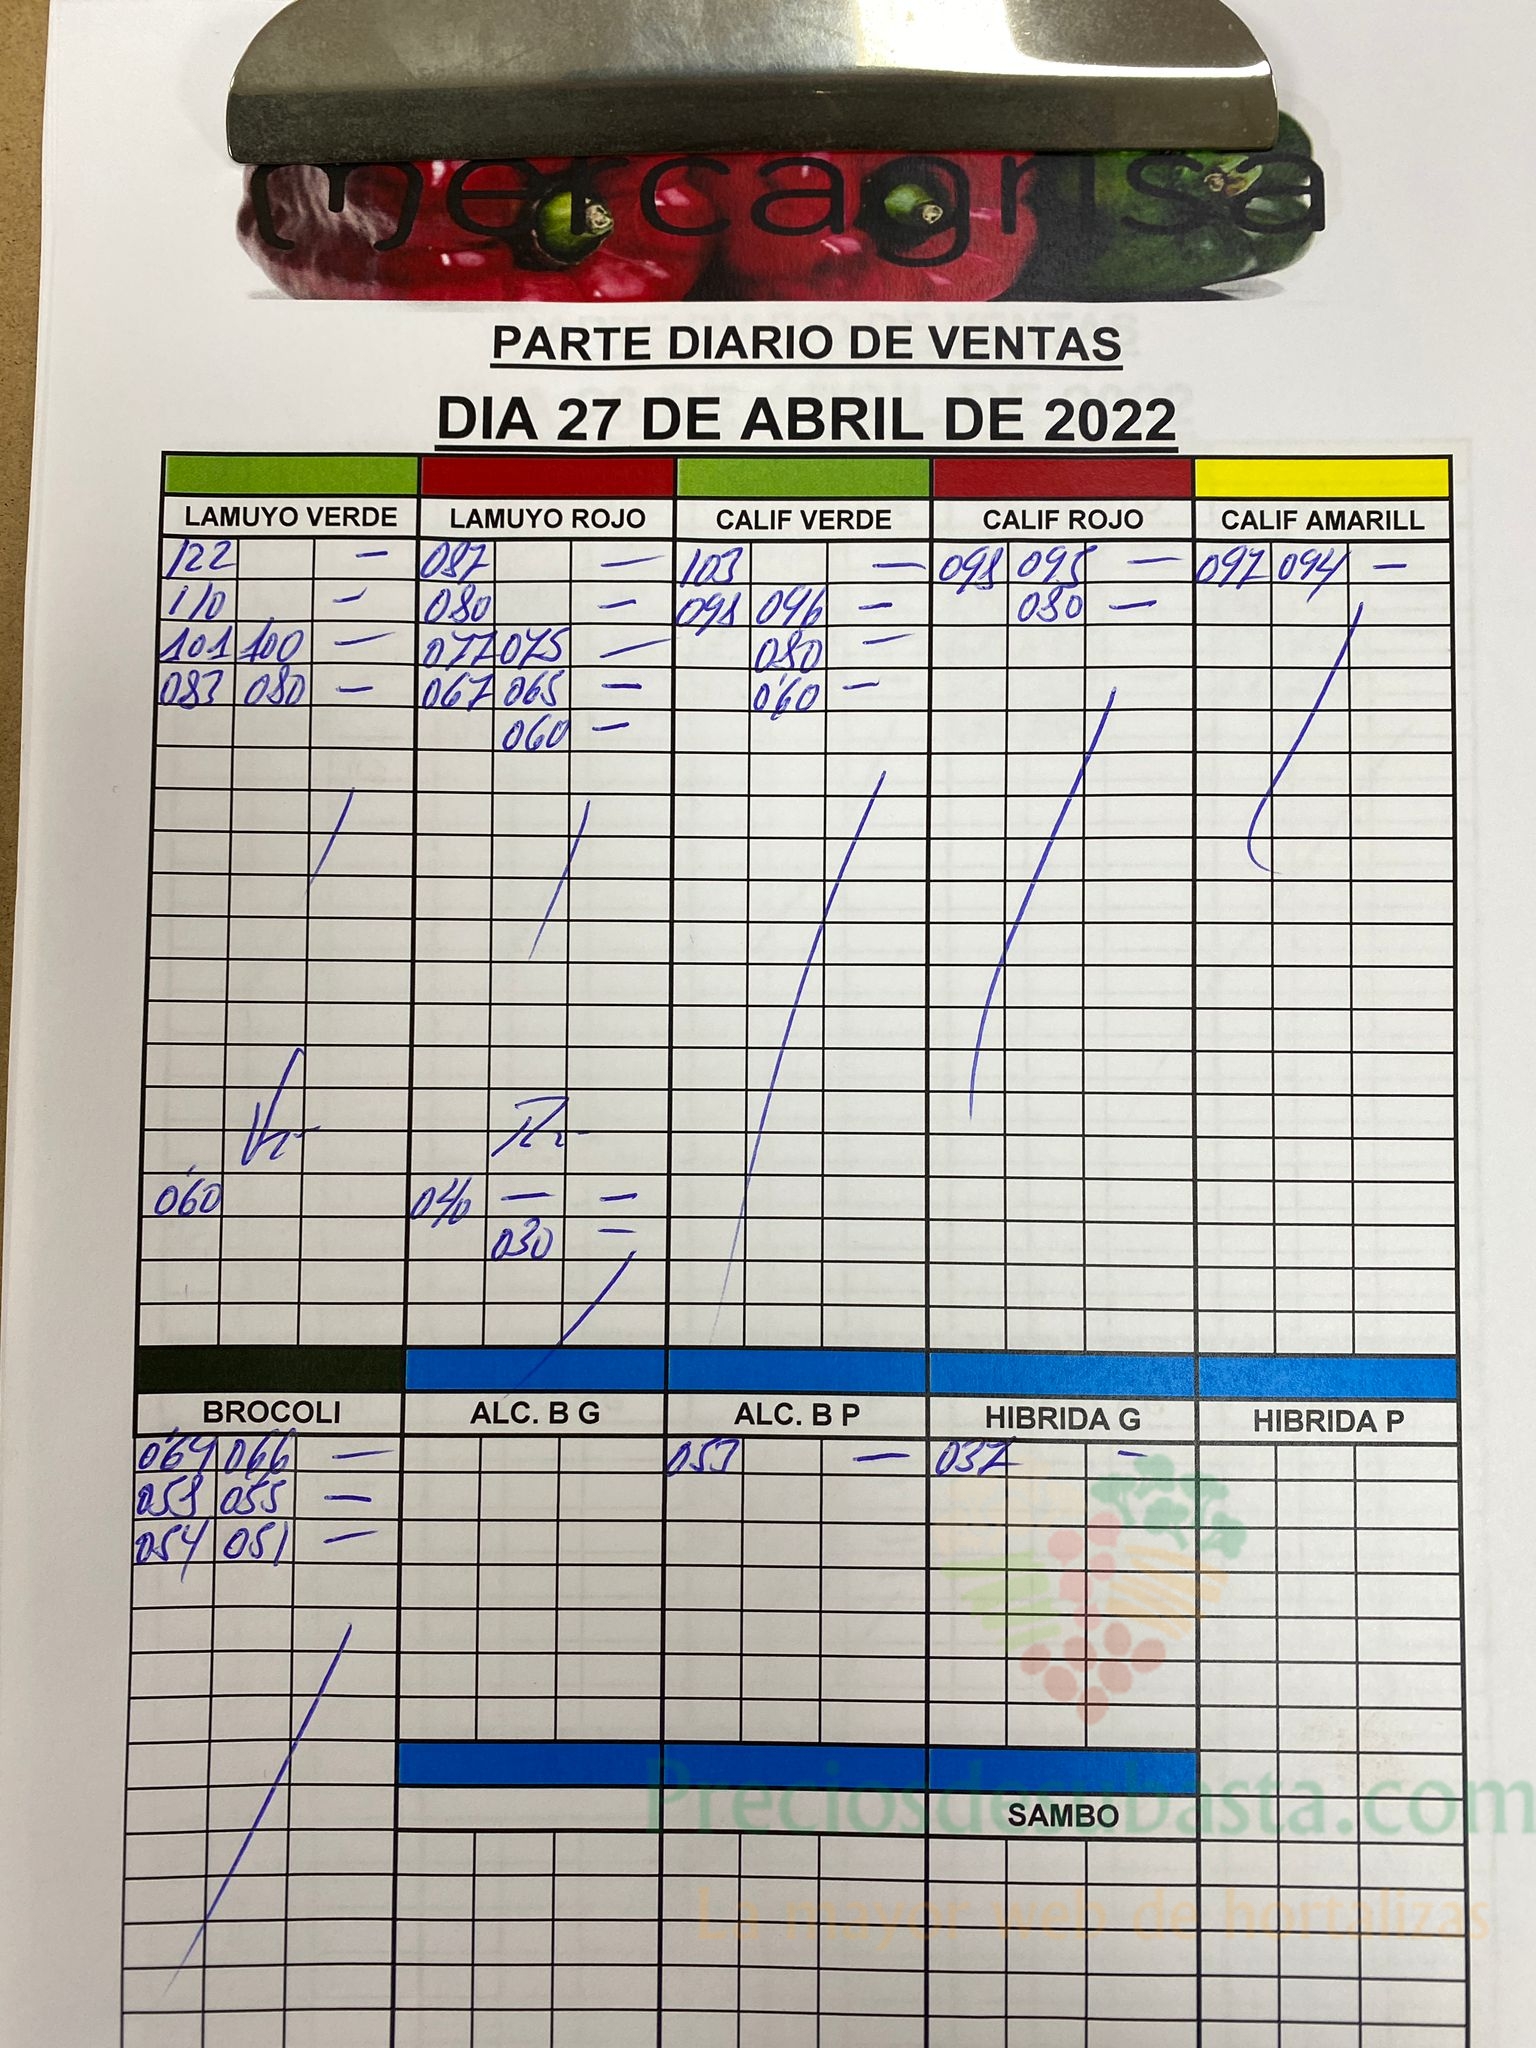 mercagrisa
PARTE DIARIO DE VENTAS
DIA 27 DE ABRIL DE 2022
LAMUYO VERDE LAMUYO ROJO CALIF VERDE CALIF ROJO CALIF AMARILL
122 — 087 — 103 — 098 095 — 097 094 —
110 — 080 — 098 096 — 080 —
101 100 — 077 075 — 080 —
083 080 — 067 065 — 0'60 —
060 —
0'60 040 — —
030 —
BROCOLI ALC. B G ALC. B P HIBRIDA G HIBRIDA P
0'69 066 — 053 — 037 —
058 055 —
054 051 —
SAMBO
Preciosdesubasta.com
La mayor web de hortalizas